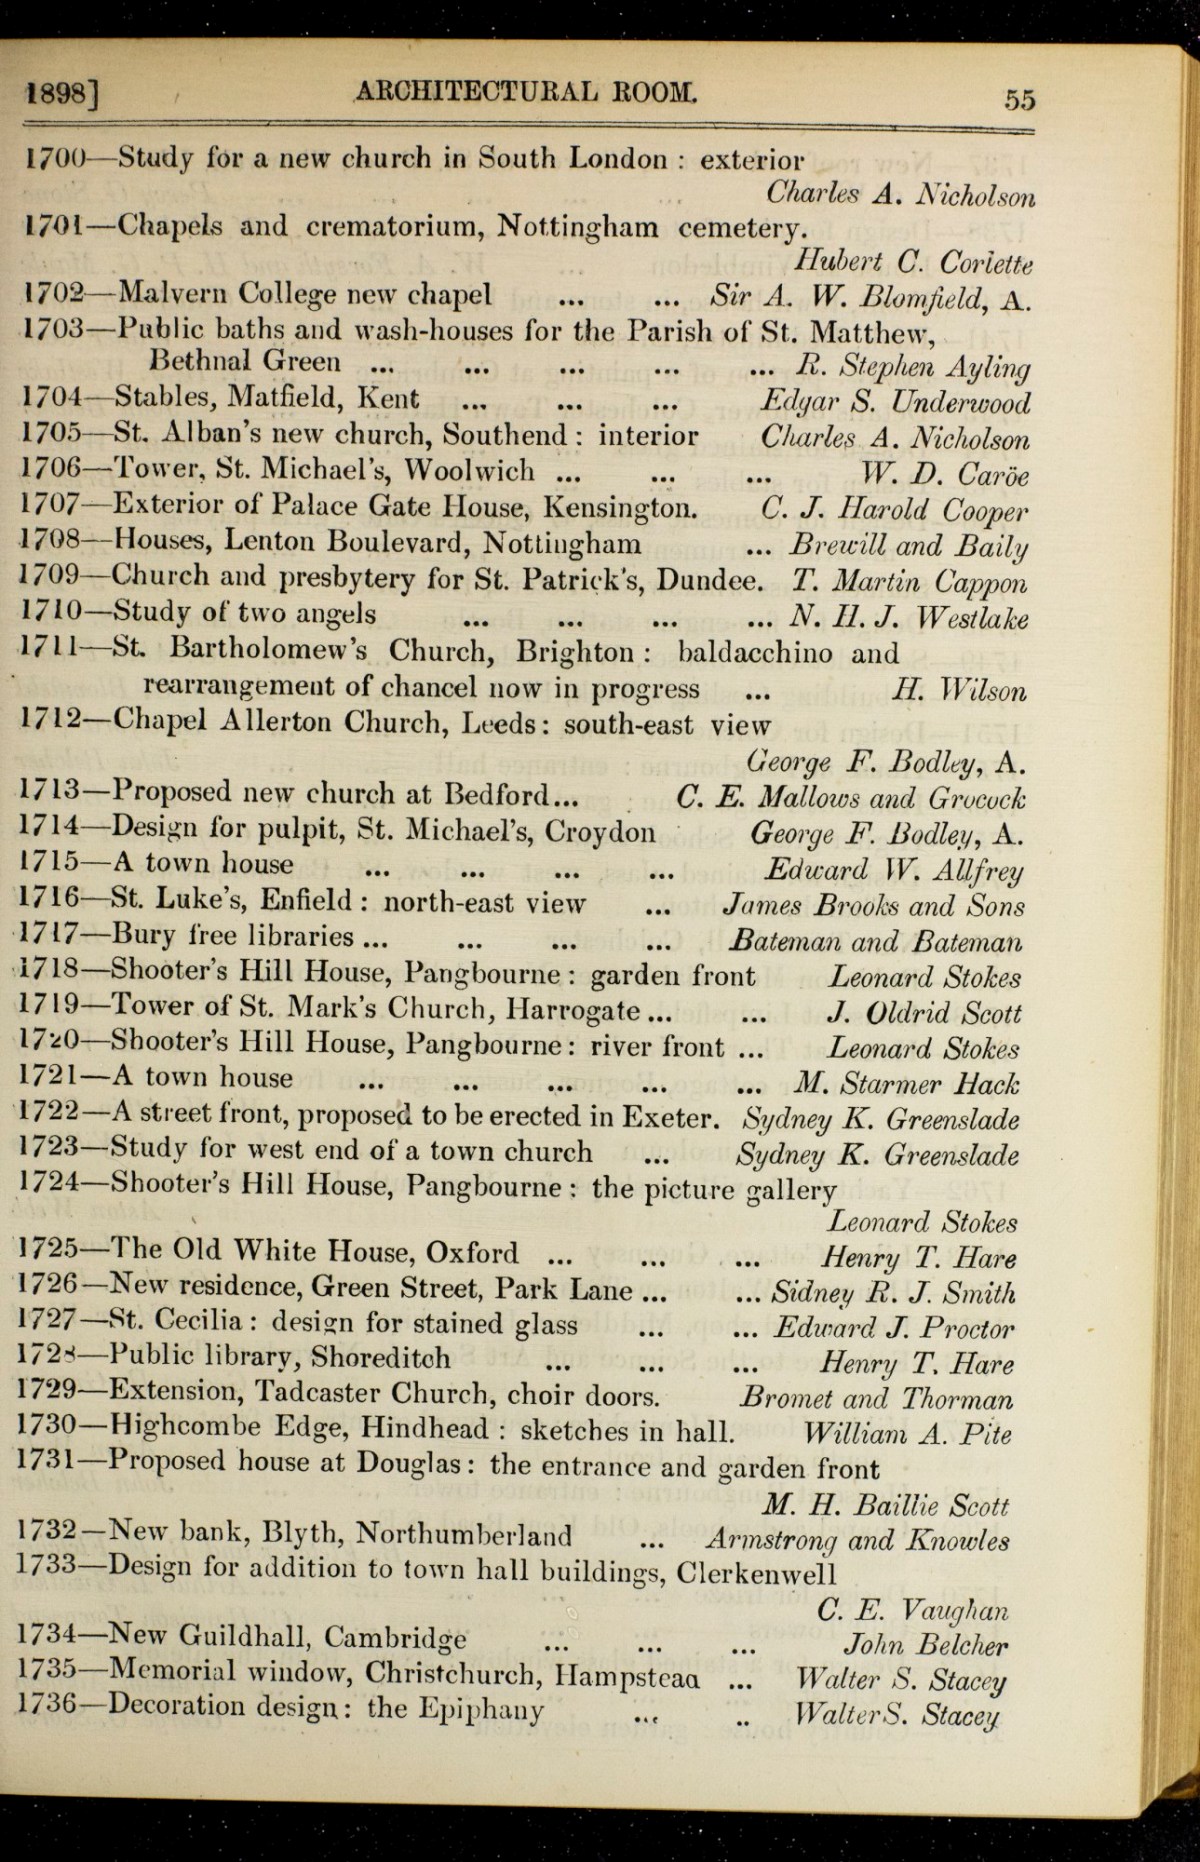 1898] ARCHITECTURAL ROOM. 55
1700—Study for a new church in South London : exterior
Charles A. Nicholson
1701—Chapels and crematorium, Nottingham cemetery.
Hubert C. Corlette
1702—Malvern College new chapel ... ... Sir A. W. Blomfield, A.
1703—Public baths and wash-houses for the Parish of St. Matthew,
Bethnal Green ... ... ... ... ... R. Stephen Ayling
1704—Stables, Matfield, Kent ... ... ... Edgar S. Underwood
1705—St. Alban's new church, Southend : interior Charles A. Nicholson
1706—Tower, St. Michael's, Woolwich ... ... ... W. D. Caröe
1707—Exterior of Palace Gate House, Kensington. C. J. Harold Cooper
1708—Houses, Lenton Boulevard, Nottingham ... Brewill and Baily
1709—Church and presbytery for St. Patrick's, Dundee. T. Martin Cappon
1710—Study of two angels ... ... ... ... N. H. J. Westlake
1711—St. Bartholomew's Church, Brighton : baldacchino and
rearrangement of chancel now in progress ... H. Wilson
1712—Chapel Allerton Church, Leeds : south-east view
George F. Bodley, A.
1713—Proposed new church at Bedford... C. E. Mallows and Grocock
1714—Design for pulpit, St. Michael's, Croydon George F. Bodley, A.
1715—A town house ... ... ... ... Edward W. Allfrey
1716—St. Luke's, Enfield : north-east view ... James Brooks and Sons
1717—Bury free libraries ... ... ... ... Bateman and Bateman
1718—Shooter's Hill House, Pangbourne : garden front Leonard Stokes
1719—Tower of St. Mark's Church, Harrogate ... ... J. Oldrid Scott
1720—Shooter's Hill House, Pangbourne : river front ... Leonard Stokes
1721—A town house ... ... ... ... ... M. Starmer Hack
1722—A street front, proposed to be erected in Exeter. Sydney K. Greenslade
1723—Study for west end of a town church ... Sydney K. Greenslade
1724—Shooter's Hill House, Pangbourne : the picture gallery
Leonard Stokes
1725—The Old White House, Oxford ... ... ... Henry T. Hare
1726—New residence, Green Street, Park Lane ... ... Sidney R. J. Smith
1727—St. Cecilia : design for stained glass ... ... Edward J. Proctor
1728—Public library, Shoreditch ... ... ... Henry T. Hare
1729—Extension, Tadcaster Church, choir doors. Bromet and Thorman
1730—Highcombe Edge, Hindhead : sketches in hall. William A. Pite
1731—Proposed house at Douglas : the entrance and garden front
M. H. Baillie Scott
1732—New bank, Blyth, Northumberland ... Armstrong and Knowles
1733—Design for addition to town hall buildings, Clerkenwell
C. E. Vaughan
1734—New Guildhall, Cambridge ... ... ... John Belcher
1735—Memorial window, Christchurch, Hampstead ... Walter S. Stacey
1736—Decoration design : the Epiphany ... .. Walter S. Stacey